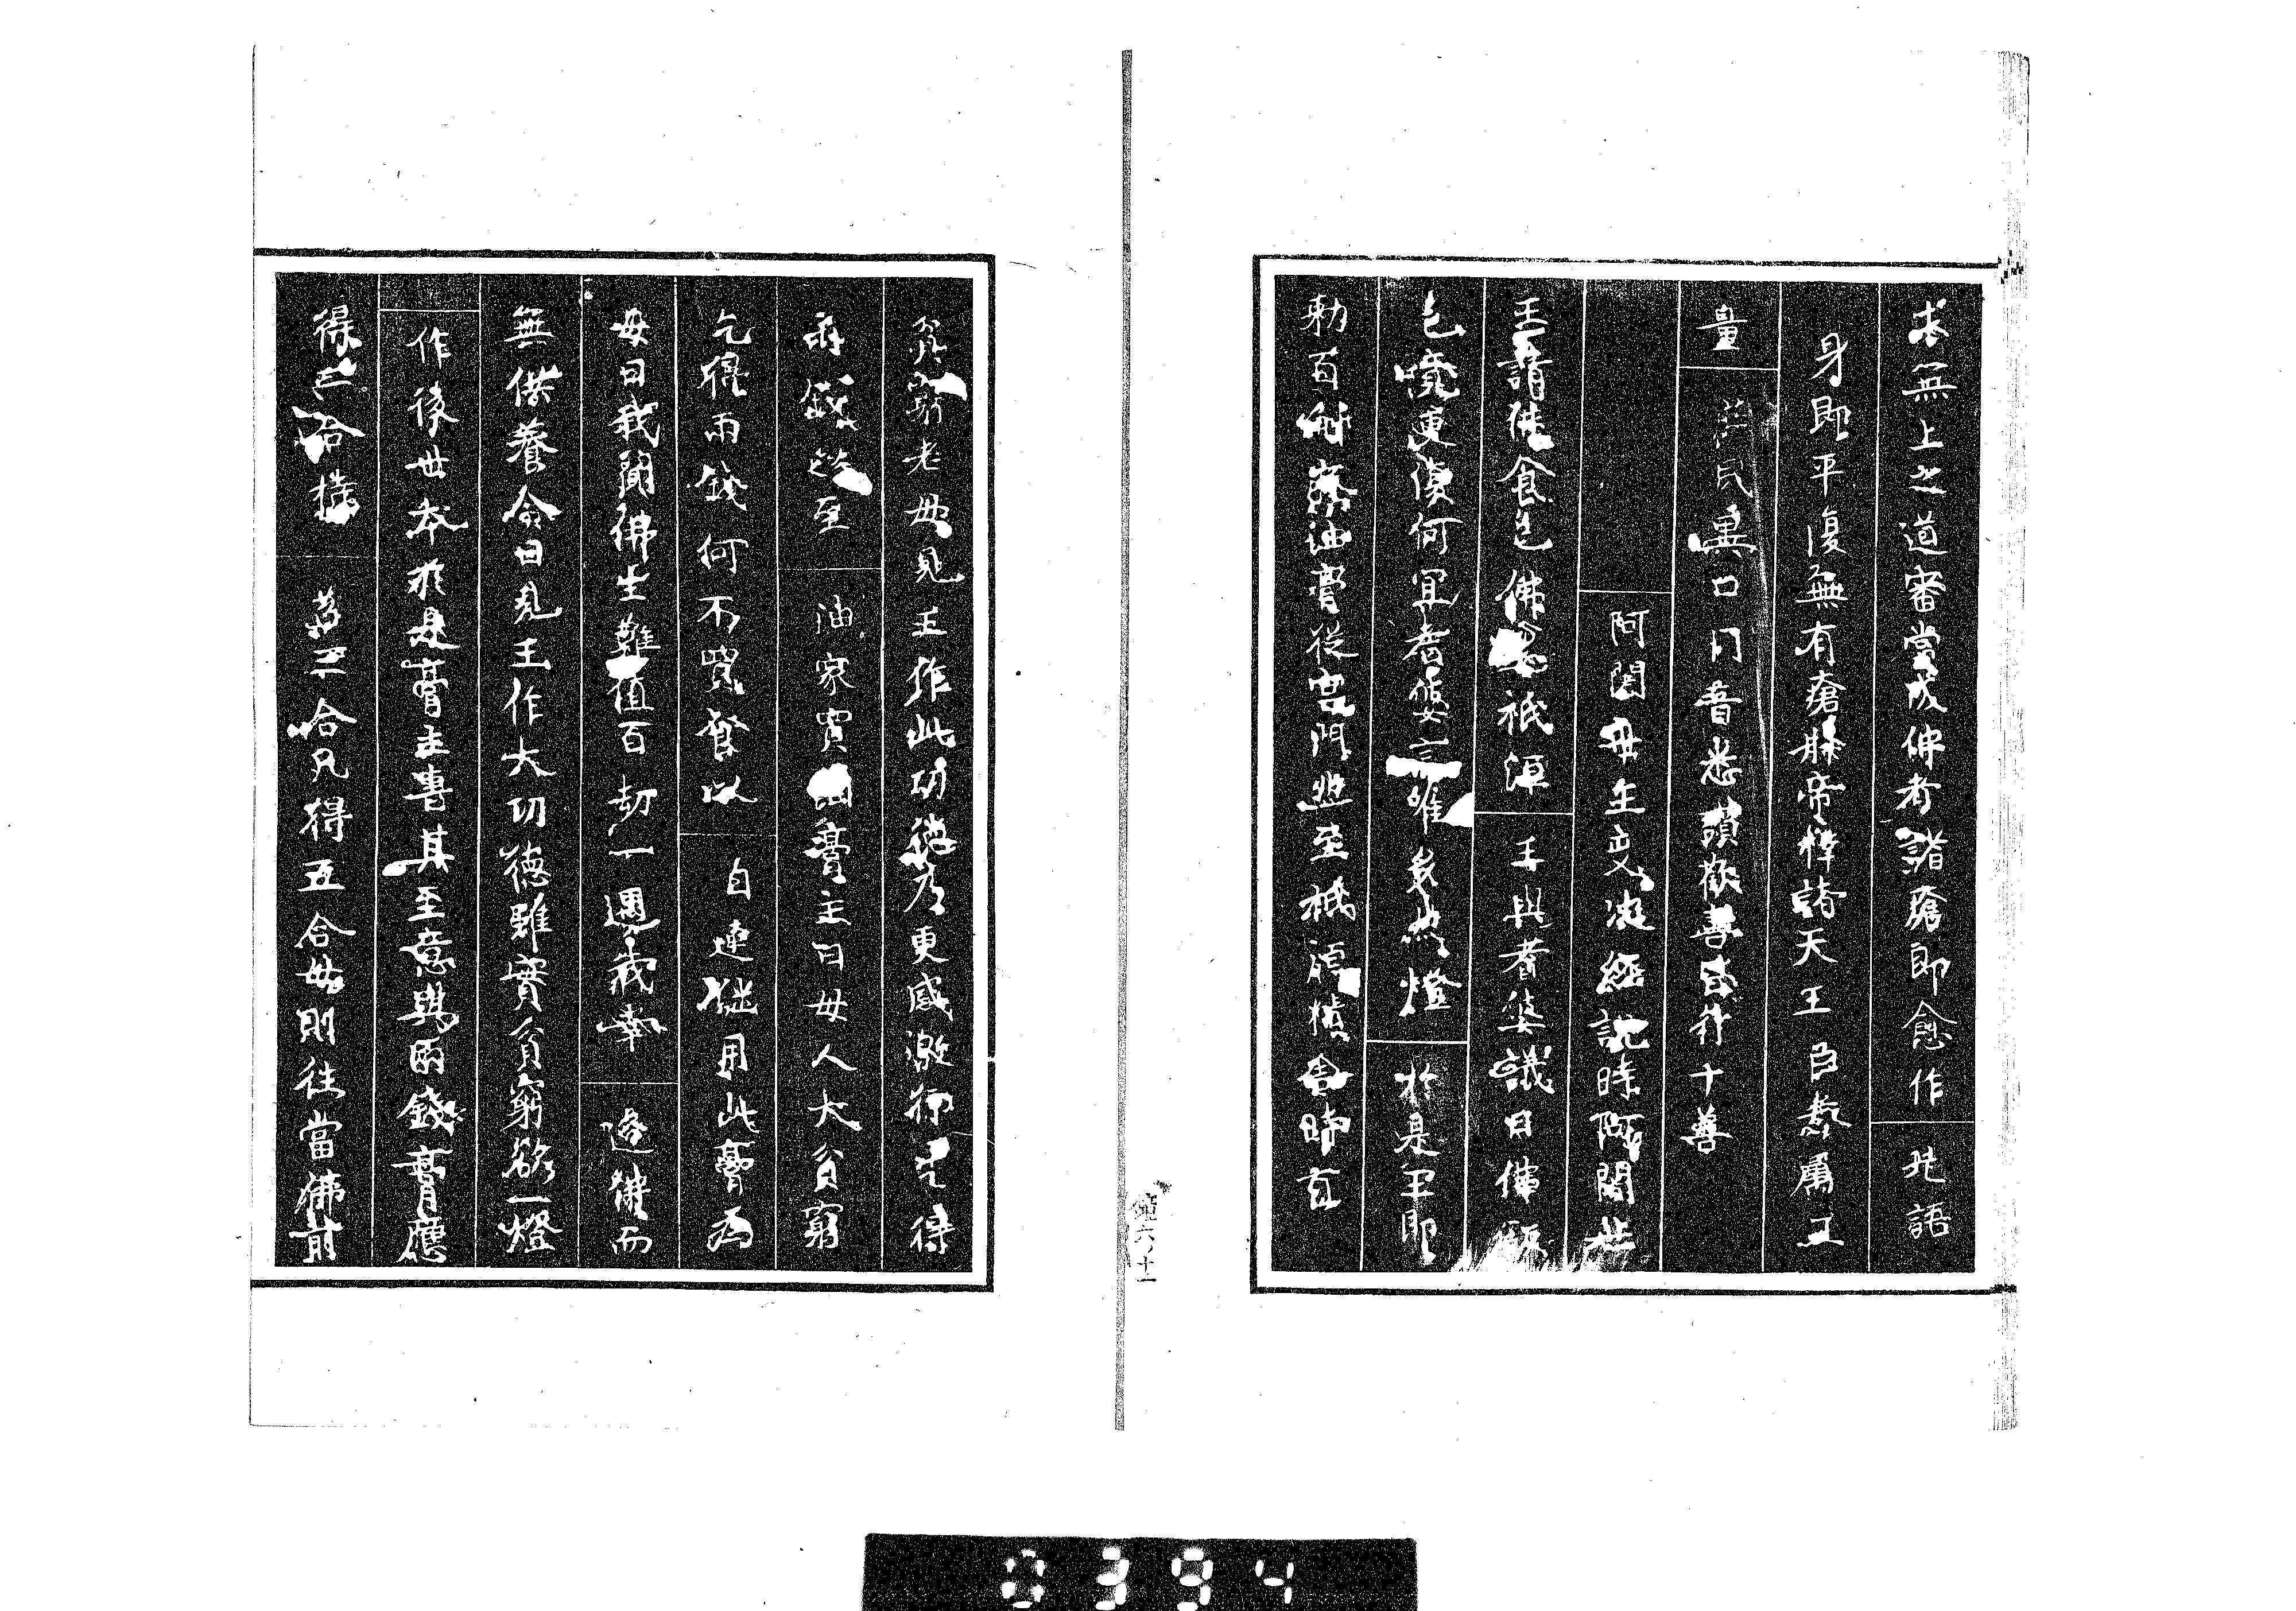 求無上之道審當成佛者諸瘡即愈作此語
身即平復無有瘡殊帝釋諸天王臣慈屬王
量 民異口同音悉頭歡善奉行十善
阿闍世王受決經說時阿闍世
王請佛食已佛還祇洹 王與耆婆議曰佛飯
已竟更復何宜耆婆言唯多然燈 於是王即
勅百斛麻油膏從宮門至祇洹精舍時有
貧窮老母見王作此功德乃更感激行乞得
兩錢以至 油家買油膏主曰母人大貧窮
乞得兩錢何不買食以自連繼用此膏為
母曰我聞佛生難值百劫一遇我幸逢佛而
無供養今日見王作大功德雖實貧窮欲一燈
作後世本於是膏主書其至意與兩錢膏應
得二合 三合凡得五合母則往當佛前
六ノ十一
0394